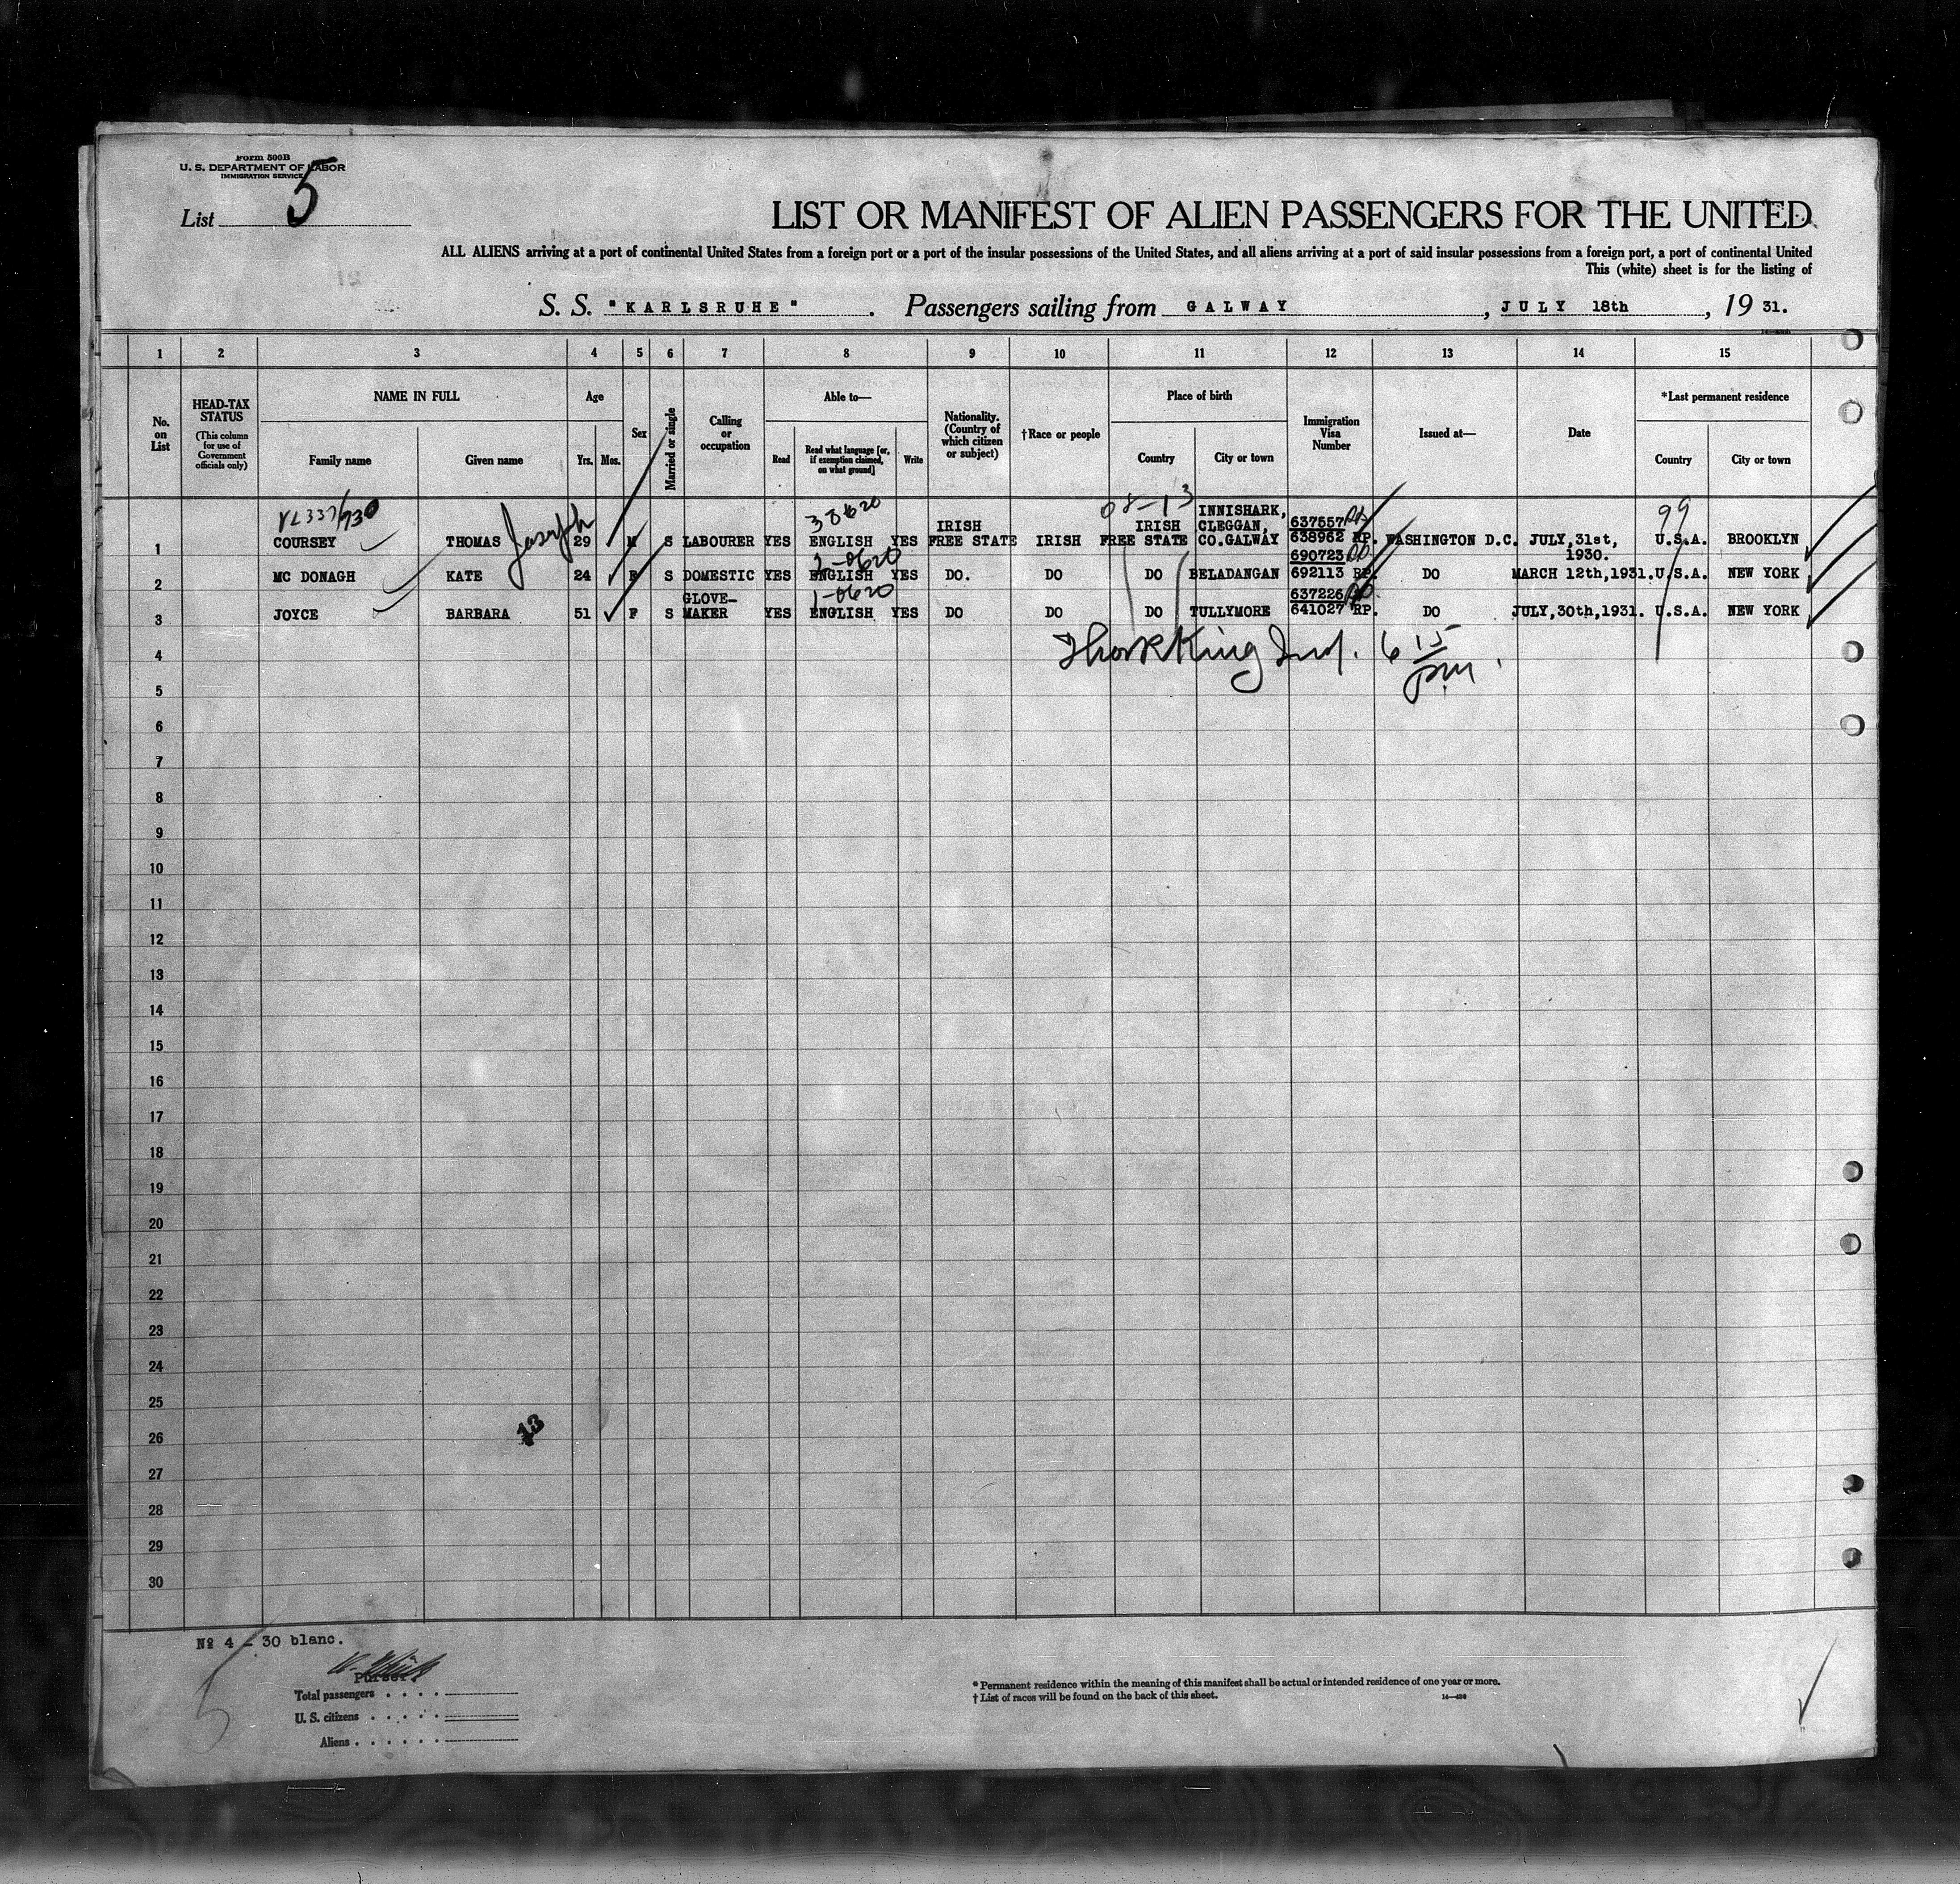 Form 500B
U. S. DEPARTMENT OF LABOR
IMMIGRATION SERVICE
List 5
LIST OR MANIFEST OF ALIEN PASSENGERS FOR THE UNITED
ALL ALIENS arriving at a port of continental United States from a foreign port or a port of the insular possessions of the United States, and all aliens arriving at a port of said insular possessions from a foreign port, a port of continental United
This (white) sheet is for the listing of
S. S. "KARLSRUHE". Passengers sailing from GALWAY, JULY 18th, 19 31.
1 2 3 4 5 6 7 8 9 10 11 12 13 14 15
No. on List
HEAD-TAX STATUS (This column for use of Government officials only)
NAME IN FULL
Family name Given name
Age
Yrs. Mos.
Sex
Married or single
Calling or occupation
Able to—
Read Read what language [or, if exemption claimed, on what ground] Write
Nationality. (Country of which citizen or subject)
†Race or people
Place of birth
Country City or town
Immigration Visa Number
Issued at—
Date
*Last permanent residence
Country City or town
08-13 99
1 COURSEY THOMAS Joseph 29 M S LABOURER YES ENGLISH YES IRISH FREE STATE IRISH IRISH FREE STATE INNISHARK, CLEGGAN, CO.GALWAY 637557 638962 RP. WASHINGTON D.C. JULY,31st, 1930. U.S.A. BROOKLYN
2 MC DONAGH KATE 24 F S DOMESTIC YES 2-0620 ENGLISH YES DO. DO DO BELADANGAN 690723 692113 RP. DO MARCH 12th,1931. U.S.A. NEW YORK
3 JOYCE BARBARA 51 F S GLOVE-MAKER YES 1-0620 ENGLISH YES DO DO DO TULLYMORE 637226 641027 RP. DO JULY,30th,1931. U.S.A. NEW YORK
4 King 6 15 pm.
5
6
7
8
9
10
11
12
13
14
15
16
17
18
19
20
21
22
23
24
25
26
27
28
29
30
13
Nº 4 - 30 blanc.
5
Purser.
Total passengers . . . .
U. S. citizens . . . . .
Aliens . . . . . .
* Permanent residence within the meaning of this manifest shall be actual or intended residence of one year or more.
† List of races will be found on the back of this sheet.